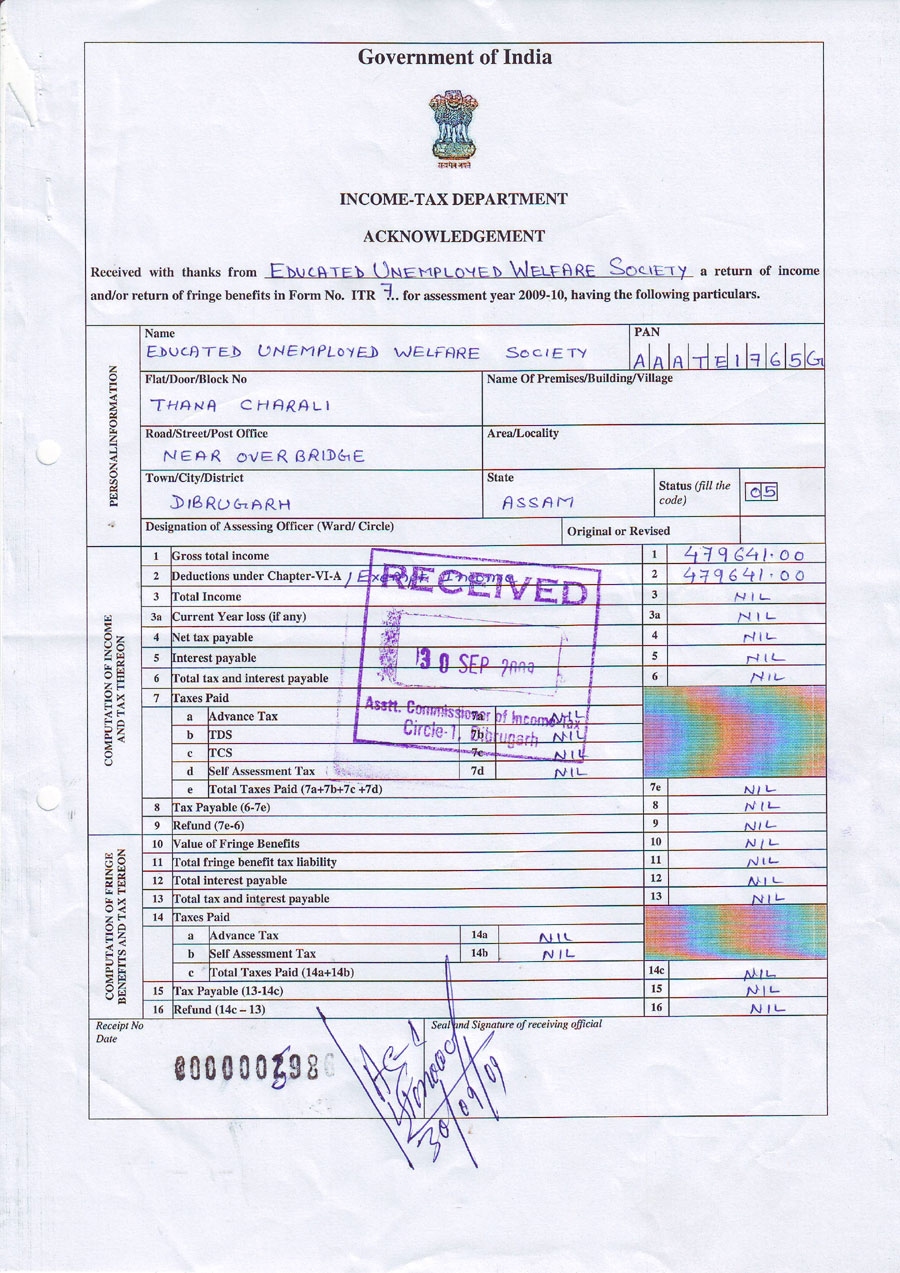 Government of India
सत्यमेव जयते
INCOME-TAX DEPARTMENT
ACKNOWLEDGEMENT
Received with thanks from EDUCATED UNEMPLOYED WELFARE SOCIETY a return of income
and/or return of fringe benefits in Form No. ITR 7.. for assessment year 2009-10, having the following particulars.
PERSONALINFORMATION
Name
EDUCATED UNEMPLOYED WELFARE SOCIETY
PAN
AAATE1765G
Flat/Door/Block No
THANA CHARALI
Name Of Premises/Building/Village
Road/Street/Post Office
NEAR OVER BRIDGE
Area/Locality
Town/City/District
DIBRUGARH
State
ASSAM
Status (fill the code)
05
Designation of Assessing Officer (Ward/ Circle)
Original or Revised
COMPUTATION OF INCOME AND TAX THEREON
1 Gross total income 1 479641.00
2 Deductions under Chapter-VI-A / Exempt Income 2 479641.00
3 Total Income 3 NIL
3a Current Year loss (if any) 3a NIL
4 Net tax payable 4 NIL
5 Interest payable 5 NIL
6 Total tax and interest payable 6 NIL
7 Taxes Paid
a Advance Tax 7a NIL
b TDS 7b NIL
c TCS 7c NIL
d Self Assessment Tax 7d NIL
e Total Taxes Paid (7a+7b+7c +7d) 7e NIL
8 Tax Payable (6-7e) 8 NIL
9 Refund (7e-6) 9 NIL
RECEIVED
30 SEP 2009
Asstt. Commissioner of Income Tax
Circle-1, Dibrugarh
COMPUTATION OF FRINGE BENEFITS AND TAX TEREON
10 Value of Fringe Benefits 10 NIL
11 Total fringe benefit tax liability 11 NIL
12 Total interest payable 12 NIL
13 Total tax and interest payable 13 NIL
14 Taxes Paid
a Advance Tax 14a NIL
b Self Assessment Tax 14b NIL
c Total Taxes Paid (14a+14b) 14c NIL
15 Tax Payable (13-14c) 15 NIL
16 Refund (14c – 13) 16 NIL
Receipt No
Date
Seal and Signature of receiving official
30/09/09